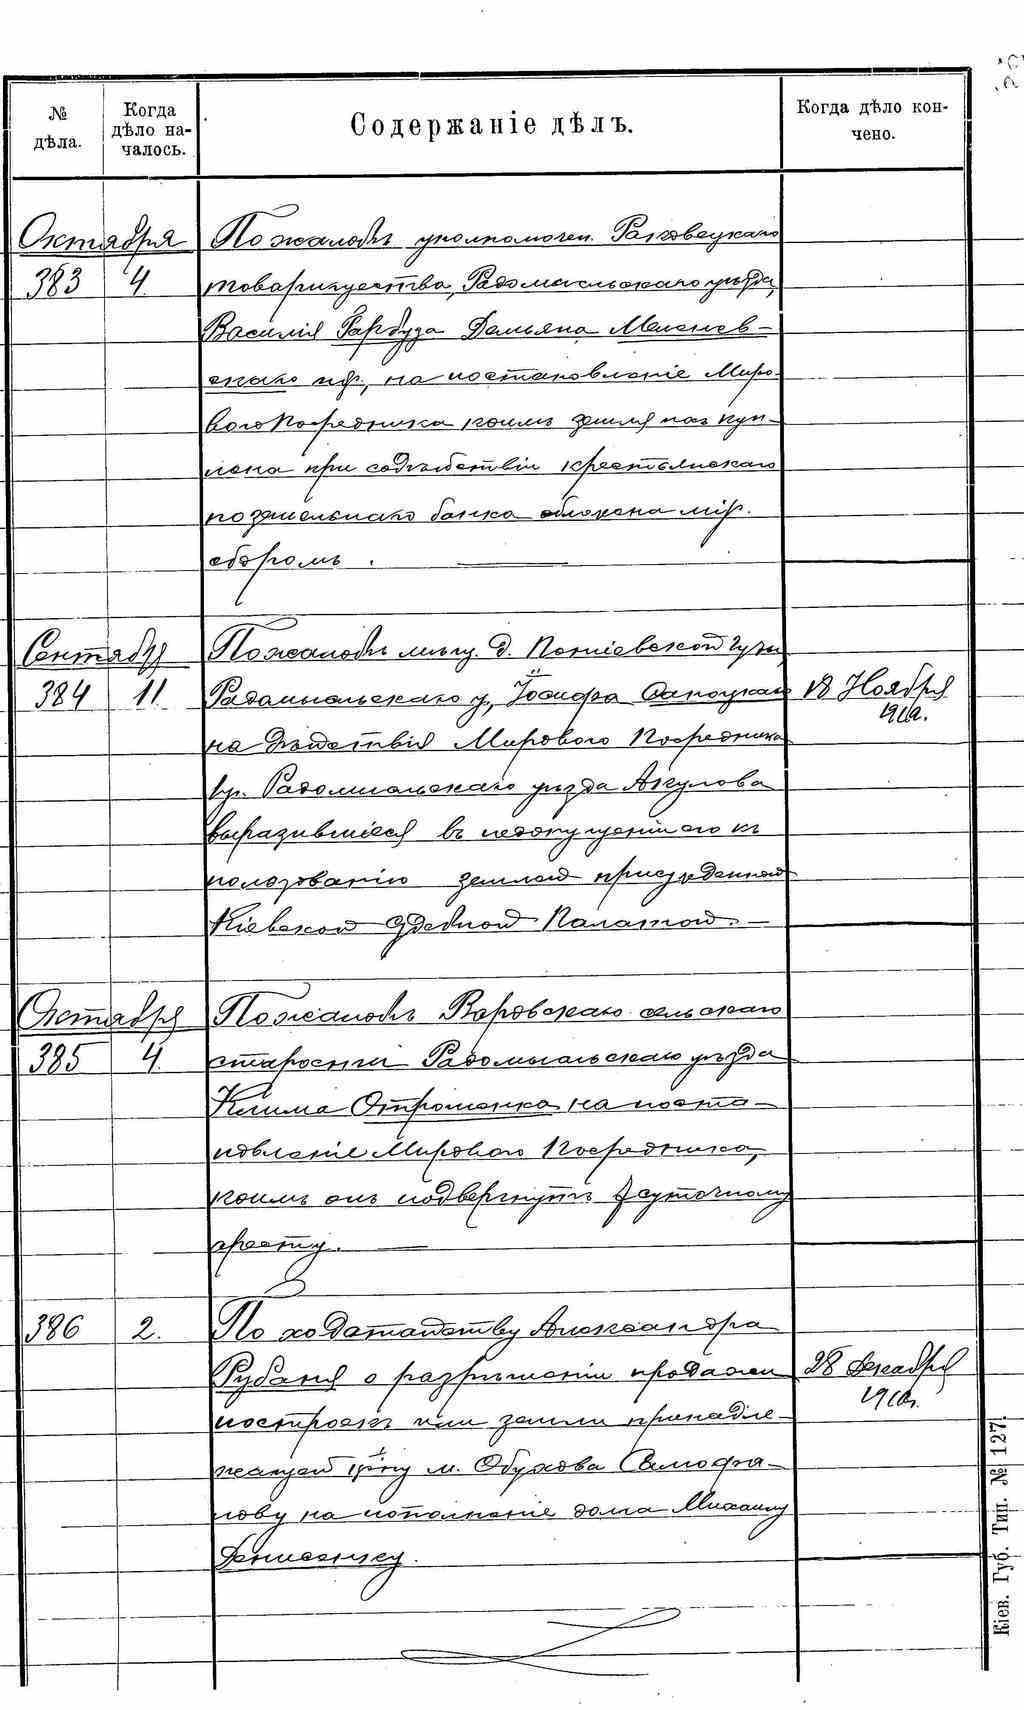 № дѣла.
Когда дѣло началось.
Содержаніе дѣлъ.
Когда дѣло кончено.
Октября
По жалобѣ уполномочен. Раковецкаго
383 4. товарищества, Радомысльскаго уѣзда,
Василія Гарбуза Демьяна Меленев-
скаго и др., на постановленіе Миро-
вого Посредника коимъ земля куп-
лена при содѣйствіи крестьянскаго
поземельнаго банка обложена мір.
сборомъ.
Сентября
По жалобѣ мѣщ. д.
384 11. Радомысльскаго у., Іосифа 18 Ноября
на дѣйствія Мирового Посредника 1910г.
Радомысльскаго уѣзда Акулова
выразившіеся въ недопущеніи его къ
пользованію землей присужденной
Кіевской Судебной Палатой.
Октября
По жалобѣ Воровскаго сельскаго
385 4. старосты Радомысльскаго уѣзда
Клима Отрошенка на поста-
новленіе Мирового Посредника,
коимъ онъ подвергнутъ суточному
аресту.
386 2. По ходатайству Александра
Рубаня о разрѣшеніи продажи 28 Декабря
построекъ или земли принадле- 1910г.
жащей м. Обухова
нову на пополненіе дома Михаилу
Денисенку.
Кіев. Губ. Тип. № 127.